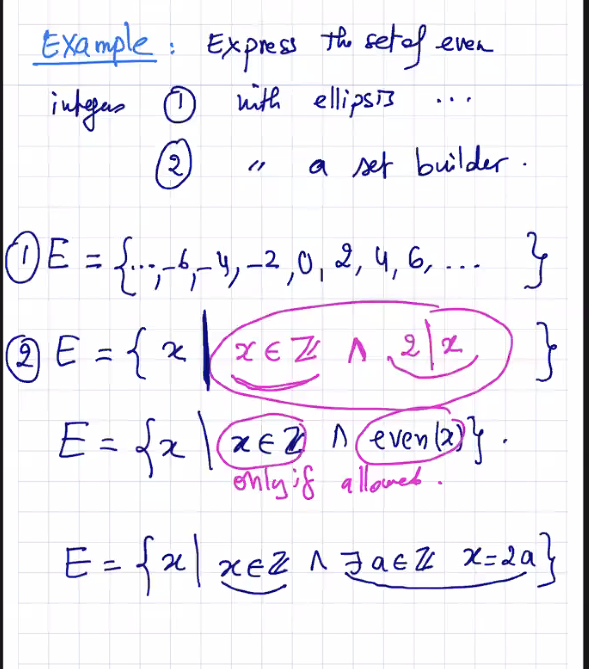 Example: Express the set of even
integers ① with ellipsis ...
② " a set builder.
① E = {..., -6, -4, -2, 0, 2, 4, 6, ... }
② E = { x | x ∈ ℤ ∧ 2|x }
E = {x | x ∈ ℤ ∧ even(x)}.
only if allowed.
E = {x | x ∈ ℤ ∧ ∃ a ∈ ℤ x = 2a}